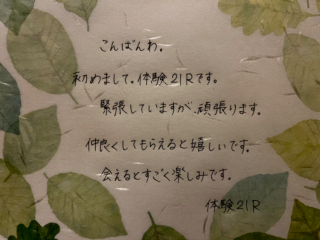 こんばんわ。
初めまして。体験21Rです。
緊張していますが、頑張ります。
仲良くしてもらえると嬉しいです。
会えるとすごく楽しみです。
体験21R